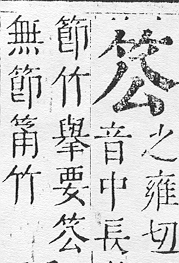 䇗
之雍切
音中長
節竹舉要䇗
無節筩竹